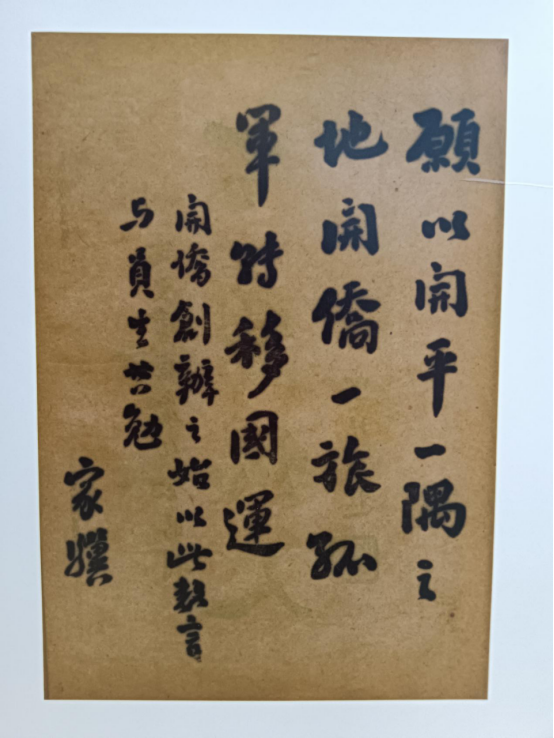 願以開平一隅之
地開僑一旅孤
軍转移國運
開僑創辦之始以此数言
与員生共勉
家驥